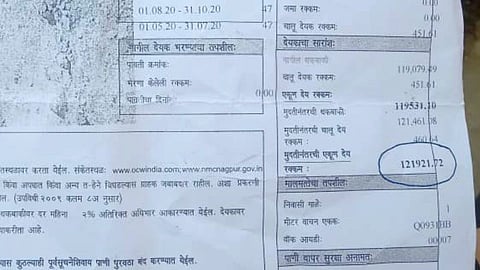 01.08.20 - 31.10.20 47
01.05.20 - 31.07.20 47
मागील देयक भरण्याचा तपशील:
पावती क्रमांक:
भरणा केलेली रक्कम: 0.00
जमा रक्कम: 0.00
चालू देयक रक्कम: 451.61
देयकाचा सारांश:
मागील थकबाकी
119,079.49
चालू देयक रक्कम:
451.61
एकूण देय
रक्कम: 119531.10
मुदतीनंतरची थकबाकी:
121,461.08
मुदतीनंतरची चालू देय
रक्कम: 460.64
मुदतीनंतरची एकूण देय
रक्कम : 121921.72
मालमत्तेचा तपशील:
निवासी गाळे: 1
मीटर वाचन एकक: Q0931HB
वॉक आयडी: 00007
पाणी वापर सुरक्षा अनामत:
करता येईल. संकेतस्थळ: www.ocwindia.com/www.nmcnagpur.gov.in
किंवा अपघात किंवा अन्य त-हेने बिघडल्यास ग्राहक जबाबदार राहील. अशा प्रकरणी
ल. (उपविधी २००९ कलम ८अ नुसार)
थकबाकीवर दर महिना २% अतिरिक्त अधिभार आकारण्यात येईल. देयकावर
करीता आहे.
यास कुठल्याही पूर्वसूचनेशिवाय पाणी पुरवठा बंद करण्यात येईल.